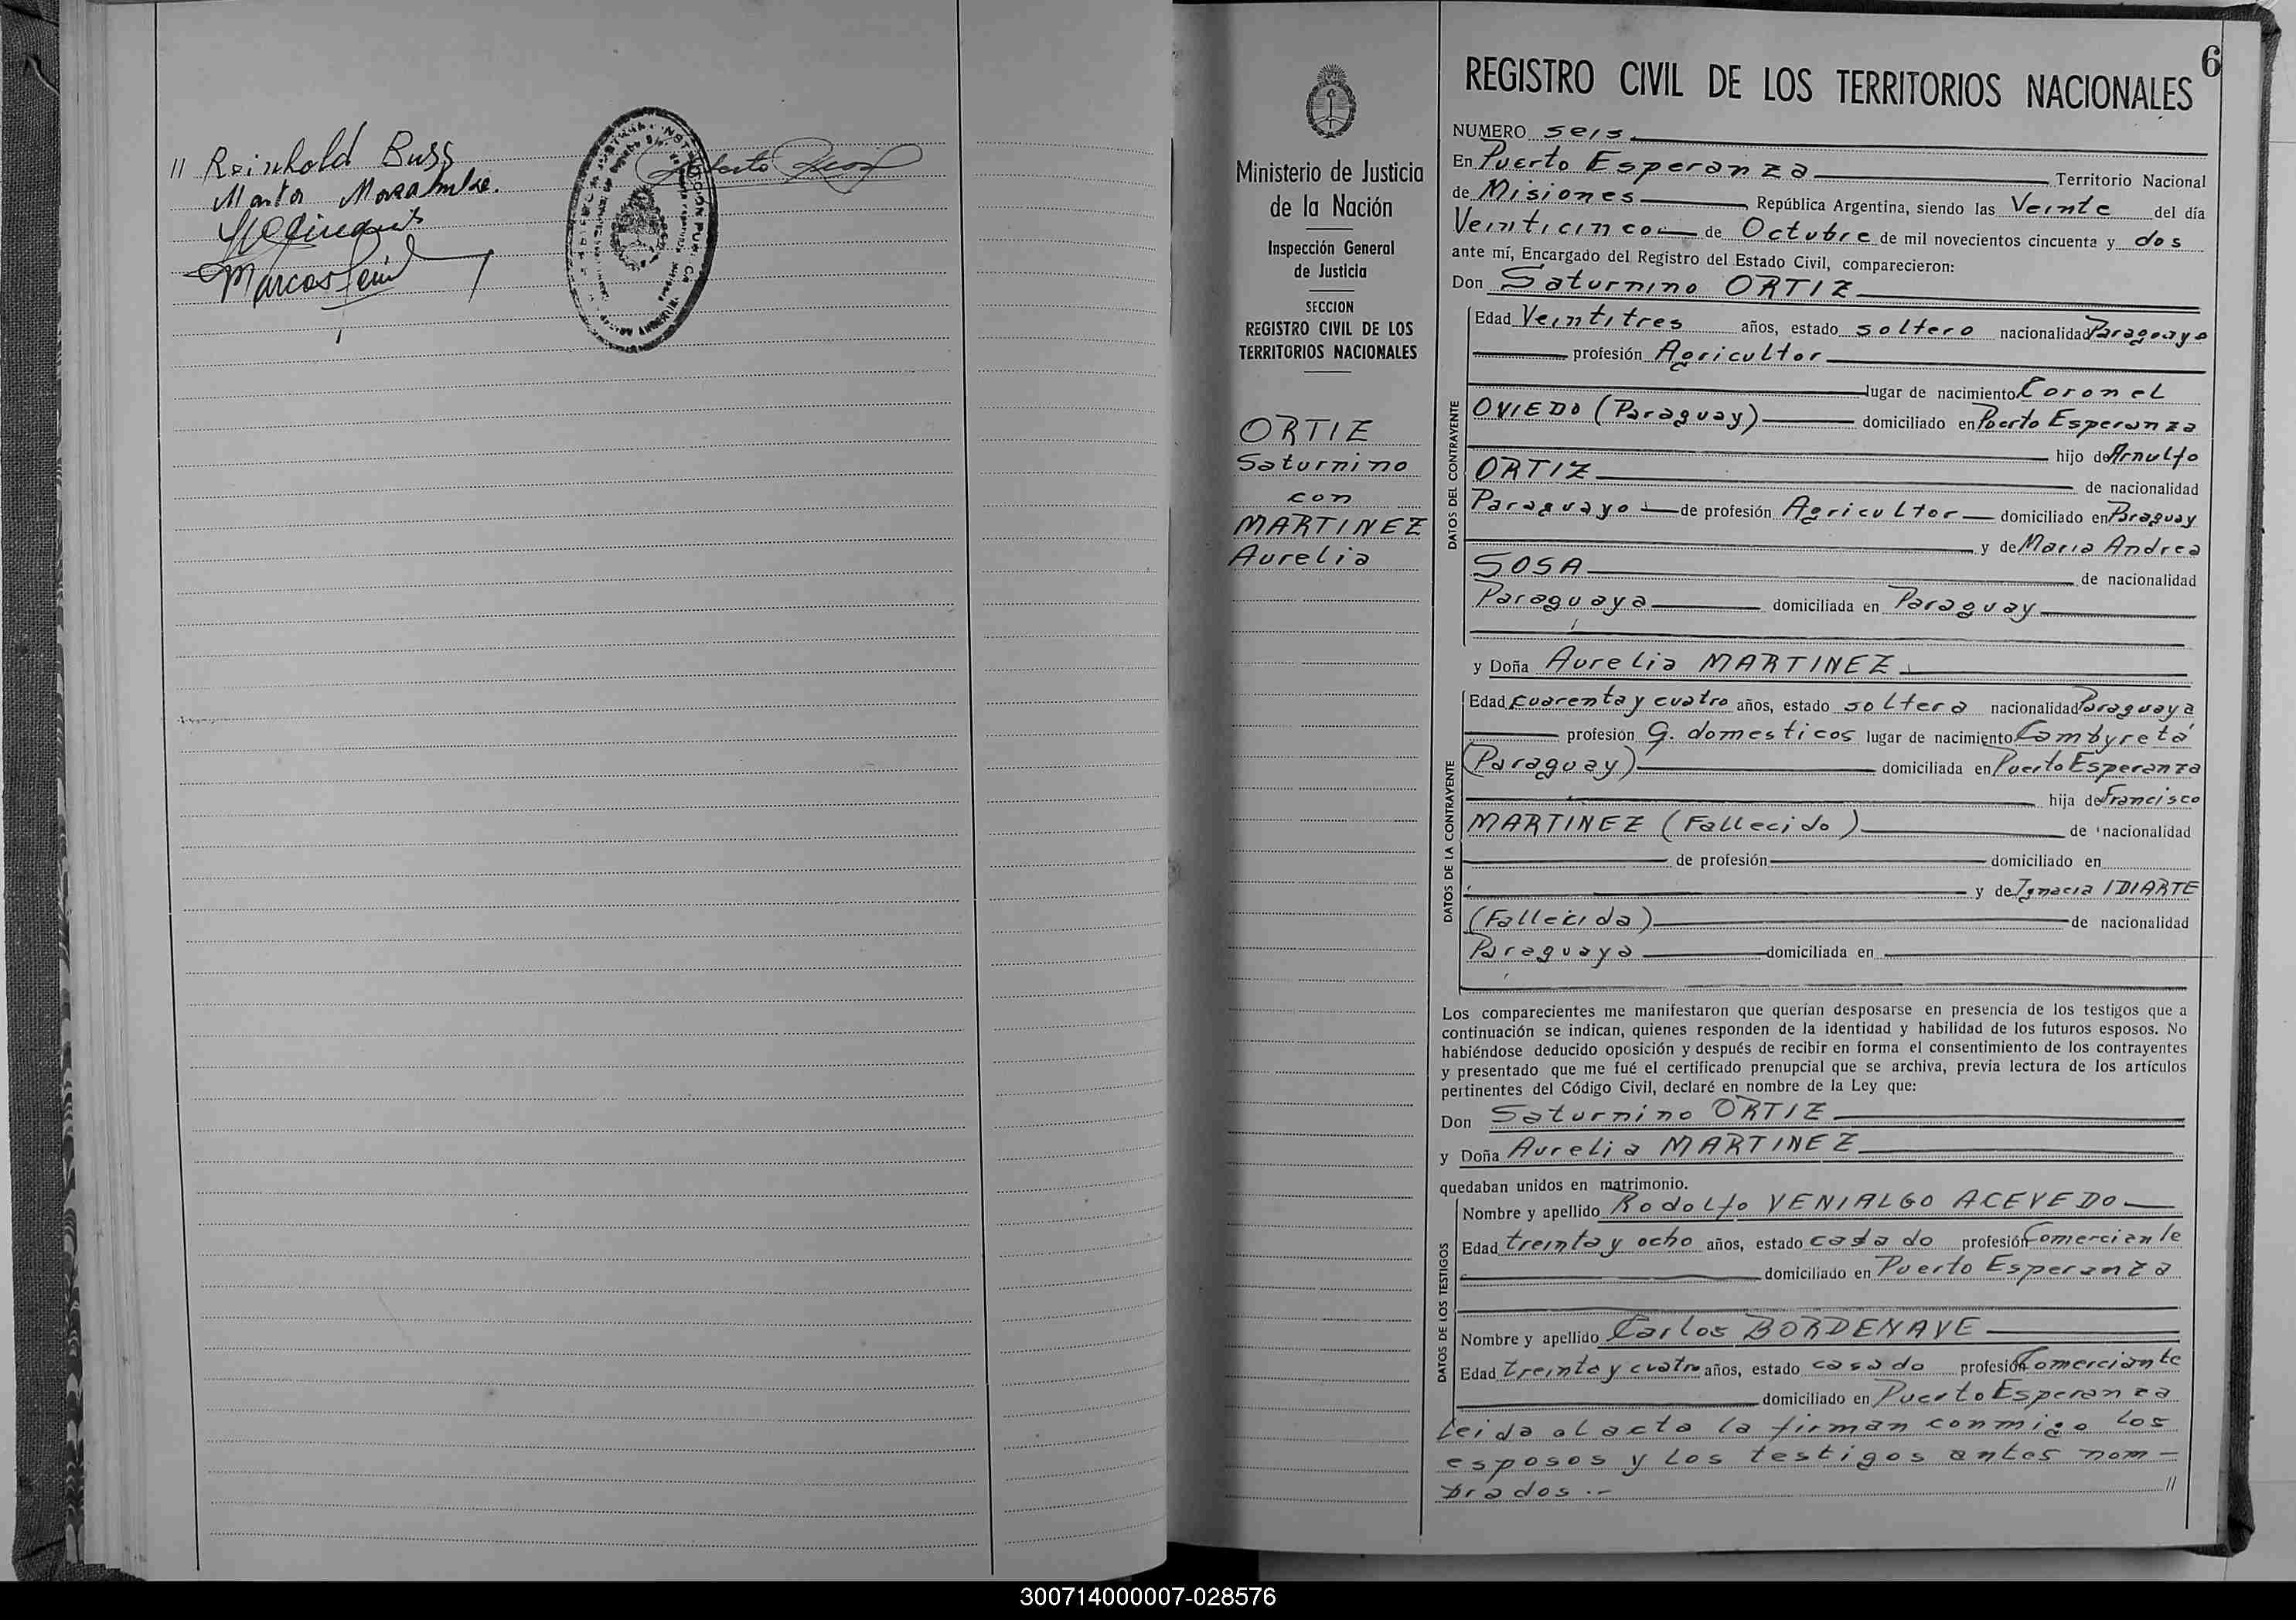 // Reinhold Buss
Marta
Marcos
6
REGISTRO CIVIL DE LOS TERRITORIOS NACIONALES
Ministerio de Justicia
de la Nación
Inspección General
de Justicia
SECCION
REGISTRO CIVIL DE LOS
TERRITORIOS NACIONALES
ORTIZ
Saturnino
con
MARTINEZ
Aurelia
NUMERO seis
En Puerto Esperanza Territorio Nacional
de Misiones República Argentina, siendo las Veinte del día
Veinticinco de Octubre de mil novecientos cincuenta y dos
ante mí, Encargado del Registro del Estado Civil, comparecieron:
Don Saturnino ORTIZ
DATOS DEL CONTRAYENTE
Edad Veintitres años, estado soltero nacionalidad Paraguayo
profesión Agricultor
lugar de nacimiento Coronel
OVIEDO (Paraguay) domiciliado en Puerto Esperanza
hijo de Arnulfo
ORTIZ de nacionalidad
Paraguayo de profesión Agricultor domiciliado en Paraguay
y de Maria Andrea
SOSA de nacionalidad
Paraguaya domiciliada en Paraguay
y Doña Aurelia MARTINEZ
DATOS DE LA CONTRAYENTE
Edad cuarenta y cuatro años, estado soltera nacionalidad Paraguaya
profesión Q. domesticos lugar de nacimiento Cambyretá
(Paraguay) domiciliada en Puerto Esperanza
hija de Francisco
MARTINEZ (Fallecido) de nacionalidad
de profesión domiciliado en
y de Ignacia IDIARTE
(Fallecida) de nacionalidad
Paraguaya domiciliada en
Los comparecientes me manifestaron que querían desposarse en presencia de los testigos que a
continuación se indican, quienes responden de la identidad y habilidad de los futuros esposos. No
habiéndose deducido oposición y después de recibir en forma el consentimiento de los contrayentes
y presentado que me fué el certificado prenupcial que se archiva, previa lectura de los artículos
pertinentes del Código Civil, declaré en nombre de la Ley que:
Don Saturnino ORTIZ
y Doña Aurelia MARTINEZ
quedaban unidos en matrimonio.
DATOS DE LOS TESTIGOS
Nombre y apellido Rodolfo VENIALGO ACEVEDO
Edad treinta y ocho años, estado casado profesión Comerciante
domiciliado en Puerto Esperanza
Nombre y apellido Carlos BORDENAVE
Edad treinta y cuatro años, estado casado profesión Comerciante
domiciliado en Puerto Esperanza
Leida el acta la firman conmigo los
esposos y los testigos antes nom-
brados.- //
300714000007-028576